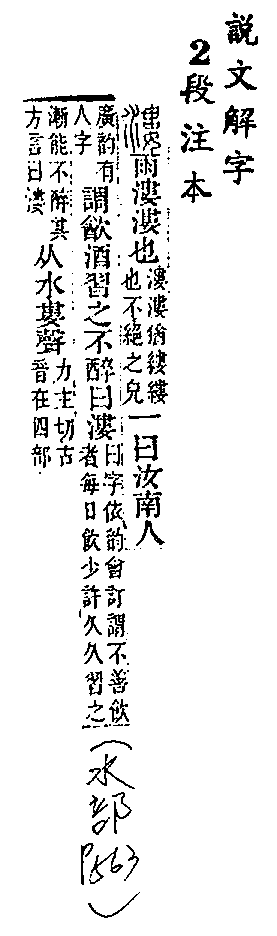 說文解字
2段注本
雨漊漊也漊漊猶縷縷也不絕之皃一曰汝南人
廣韵有人字謂飲酒習之不醉曰漊曰字依韵會訂謂不善飲者每日飲少許久久習之
漸能不醉其方言曰漊从水婁聲力主切古音在四部
(水部P563)